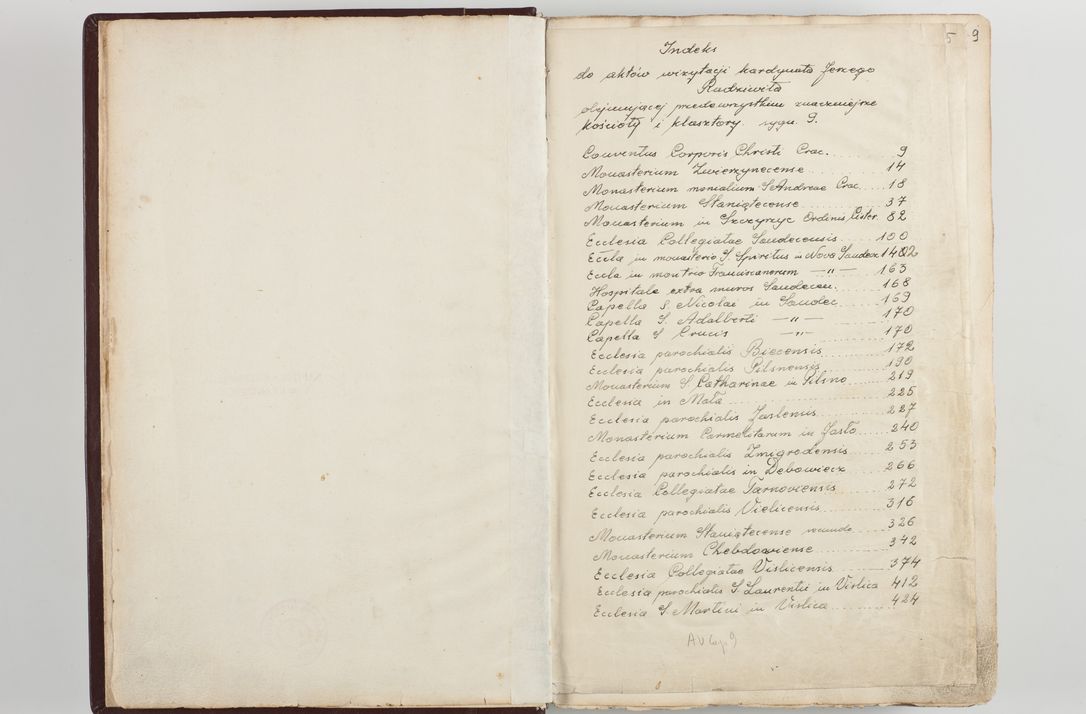 5 9
Indeks
do aktów wizytacji kardynała Jerzego
Radziwiłła
obejmującej przedewszystkiem znaczniejsze
kościoły i klasztory. sygn. 9.
Conventus Corporis Christi Crac. 9
Monasterium Zwierzynecense 14
Monasterium monialium S Andreae Crac. 18
Monasterium Staniątecense 37
Monasterium in Szczyrzyc Ordinis Cister. 82
Ecclesia Collegiatae Sandecensis 100
Eccla in monasterio S. Spiritus in Nova Sandecz 142
Eccla in montrio Franciscanorum —"— 163
Hospitale extra muros Sandecen. 168
Capella S. Nicolai in Sandec. 169
Capella S. Adalberti —"— 170
Capella S Crucis —"— 170
Ecclesia parochialis Biecensis 172
Ecclesia parochialis Pilsnensis 190
Monasterium S Catharinae in Pilsno 219
Ecclesia in Mała 225
Ecclesia parochialis Jaslensis 227
Monasterium Carmelitarum in Jasło 240
Ecclesia parochialis Zmigrodensis 253
Ecclesia parochialis in Dębowiecz 266
Ecclesia Collegiatae Tarnoviensis 272
Ecclesia parochialis Vielicensis 316
Monasterium Staniątecense secundo 326
Monasterium Chebdoviense 342
Ecclesia Collegiatae Vislicensis 374
Ecclesia parochialis S Laurentii in Vislica 412
Ecclesia S. Martini in Vislica 424
AV Cap. 9